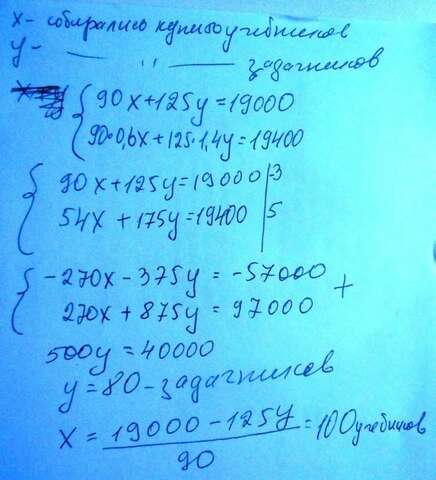 x - собирались купить учебников
y - — " — задачников
90x+125y=19000
90·0,6x+125·1,4y=19400
90x+125y=19000 |-3
54x+175y=19400 |5
-270x-375y=-57000
270x+875y=97000 +
500y=40000
y=80-задачников
x=(19000-125y)/90=100учебников